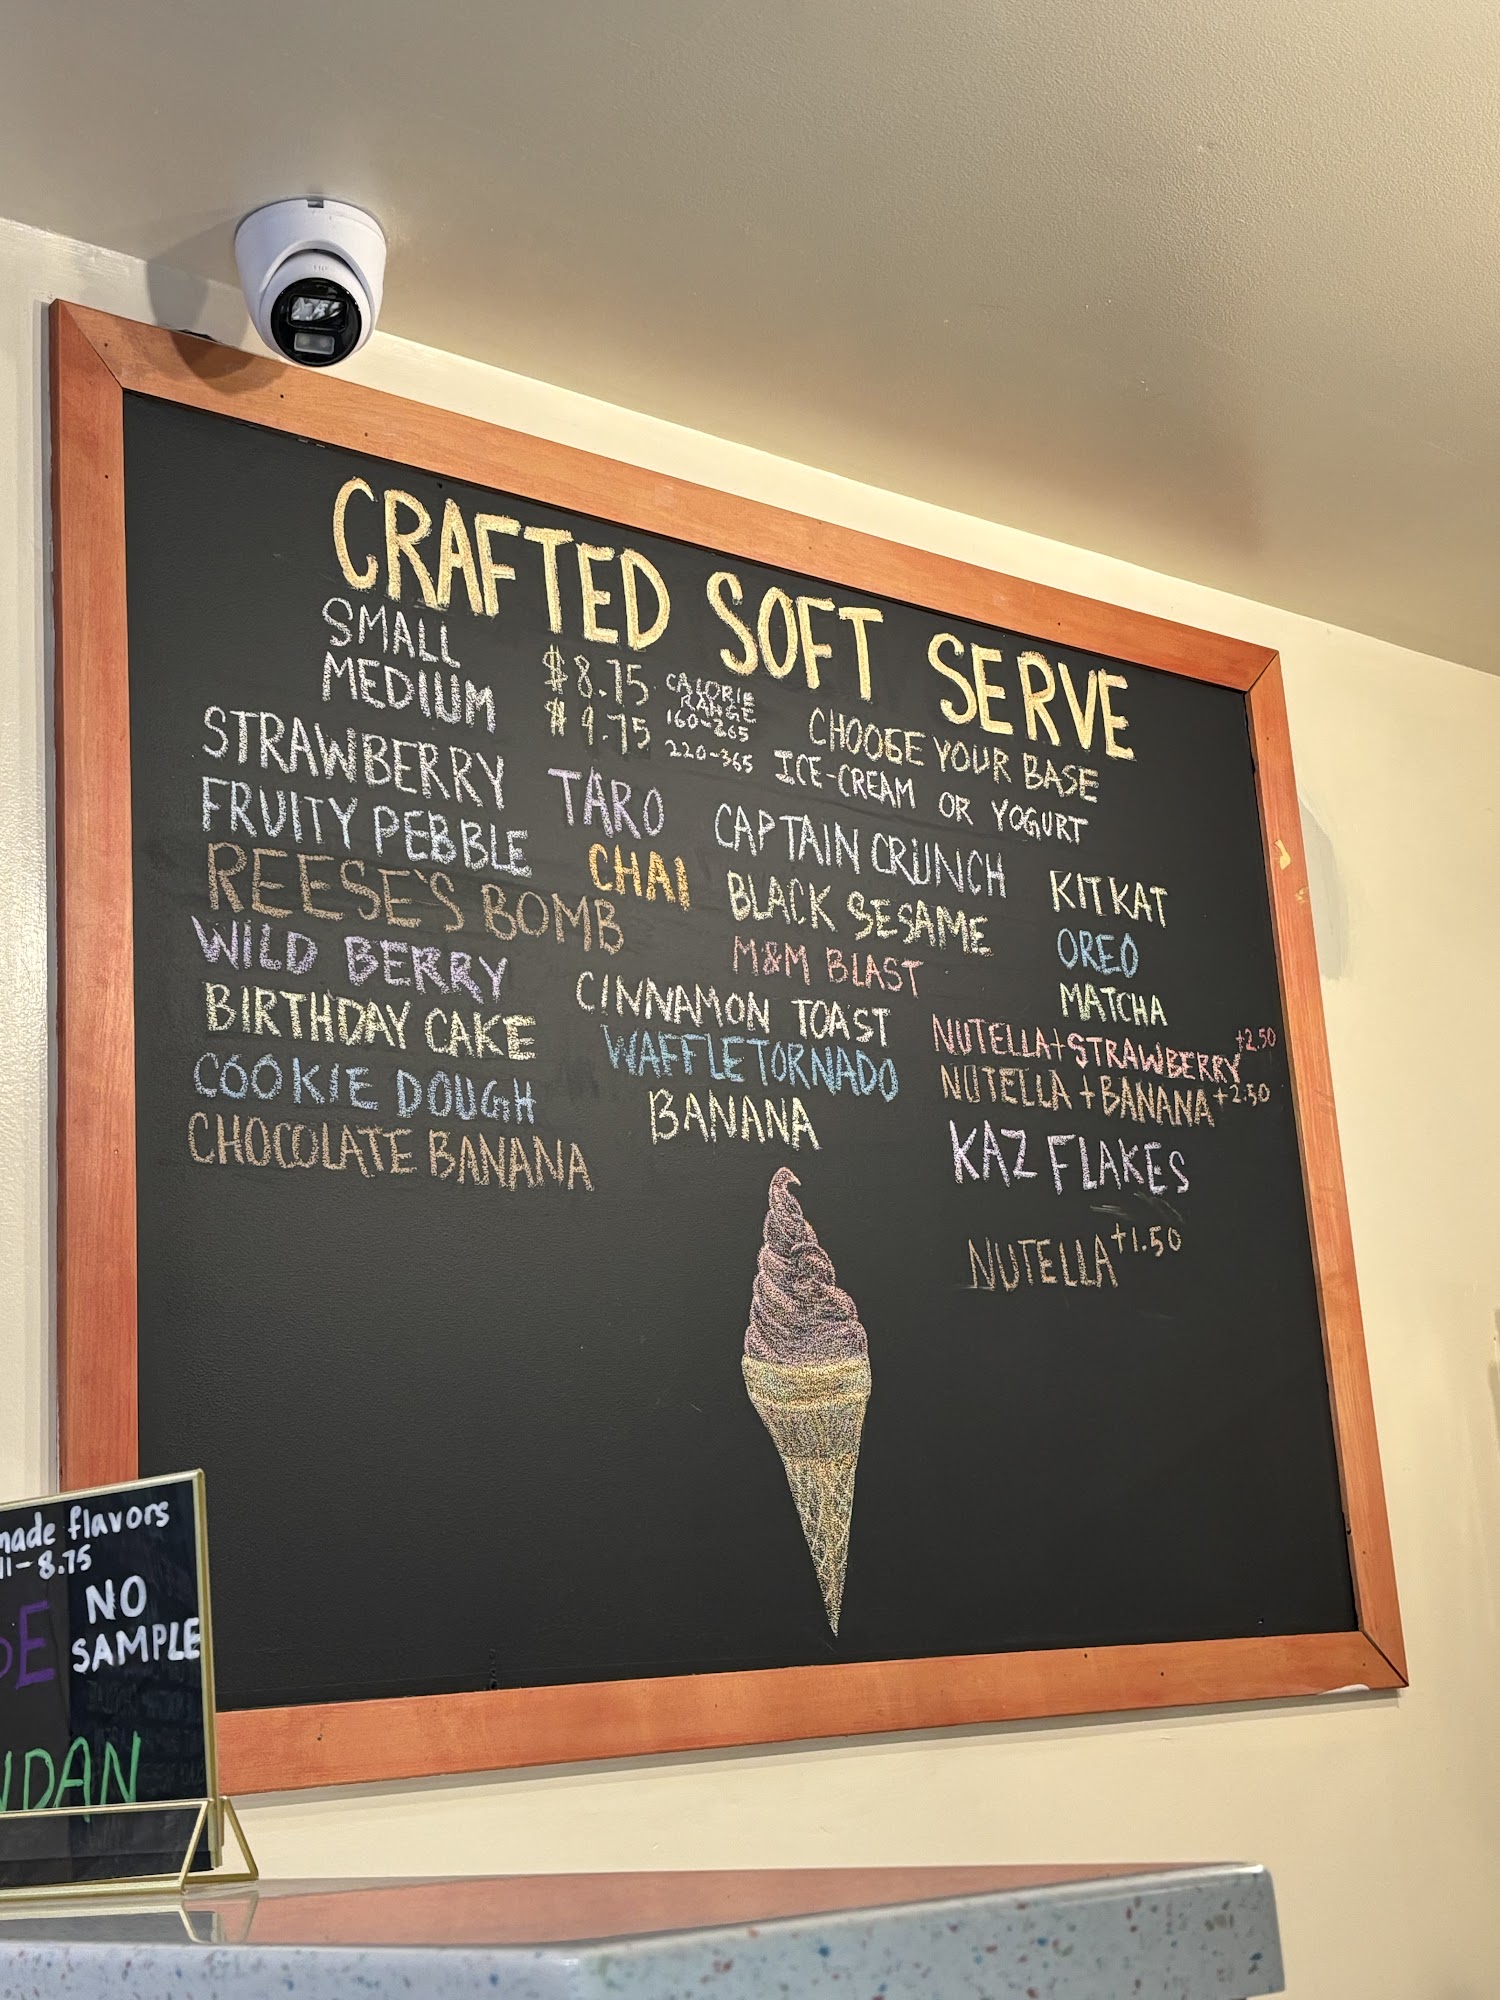 CRAFTED SOFT SERVE
SMALL $8.75 CALORIE RANGE 160-265
MEDIUM $9.75 220-365
CHOOSE YOUR BASE
ICE-CREAM OR YOGURT
STRAWBERRY
FRUITY PEBBLE
REESE'S BOMB
WILD BERRY
BIRTHDAY CAKE
COOKIE DOUGH
CHOCOLATE BANANA
TARO
CHAI
CAPTAIN CRUNCH
BLACK SESAME
M&M BLAST
CINNAMON TOAST
WAFFLE TORNADO
BANANA
KITKAT
OREO
MATCHA
NUTELLA+STRAWBERRY +2.50
NUTELLA+BANANA +2.50
KAZ FLAKES
NUTELLA +1.50
flavors
8.75
NO
SAMPLE